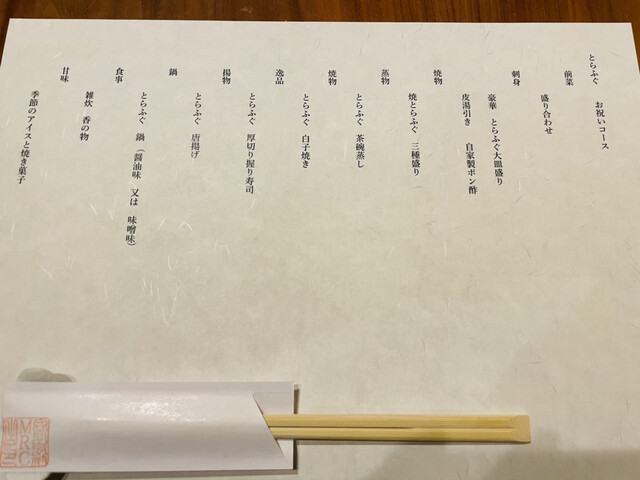 とらふぐ お祝いコース
前菜
盛り合わせ
刺身
豪華 とらふぐ大皿盛り
皮湯引き 自家製ポン酢
焼物
焼とらふぐ 三種盛り
蒸物
とらふぐ 茶碗蒸し
焼物
とらふぐ 白子焼き
逸品
とらふぐ 厚切り握り寿司
揚物
とらふぐ 唐揚げ
鍋
とらふぐ 鍋 (醤油味 又は 味噌味)
食事
雑炊 香の物
甘味
季節のアイスと焼き菓子